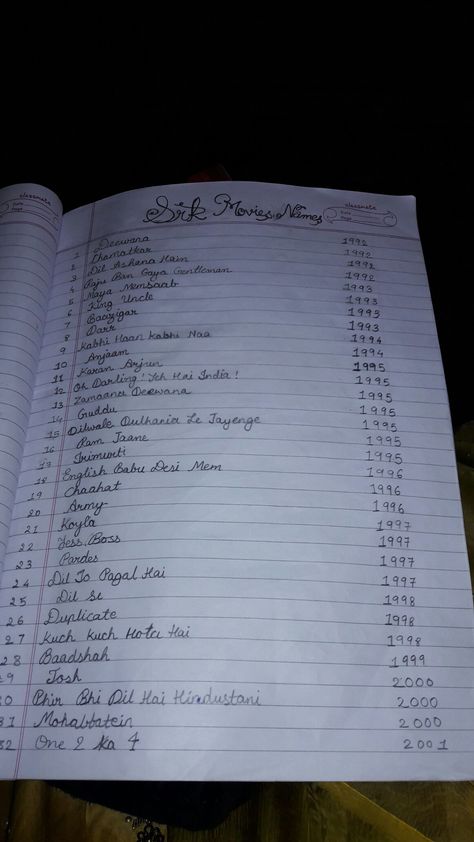 classmate
Date
Page
classmate
Date
Page
Srk Movies Names
1 Deewana 1992
2 Chamatkar 1992
3 Dil Ashana Hain 1992
4 Raju Ban Gaya Gentleman 1992
5 Maya Memsaab 1993
6 King Uncle 1993
7 Baazigar 1993
8 Darr 1993
9 Kabhi Haan Kabhi Naa 1994
10 Anjaam 1994
11 Karan Arjun 1995
12 Oh Darling! Yeh Hai India! 1995
13 Zamaana Deewana 1995
14 Guddu 1995
15 Dilwale Dulhania Le Jayenge 1995
16 Ram Jaane 1995
17 Trimurti 1995
18 English Babu Desi Mem 1996
19 Chaahat 1996
20 Army 1996
21 Koyla 1997
22 Yess Boss 1997
23 Pardes 1997
24 Dil To Pagal Hai 1997
25 Dil Se 1998
26 Duplicate 1998
27 Kuch Kuch Hota Hai 1998
28 Baadshah 1999
29 Josh 2000
30 Phir Bhi Dil Hai Hindustani 2000
31 Mohabbatein 2000
32 One 2 Ka 4 2001